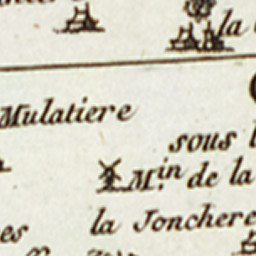 la
Mulatiere
sous
M.in de la
la Jonchere
es